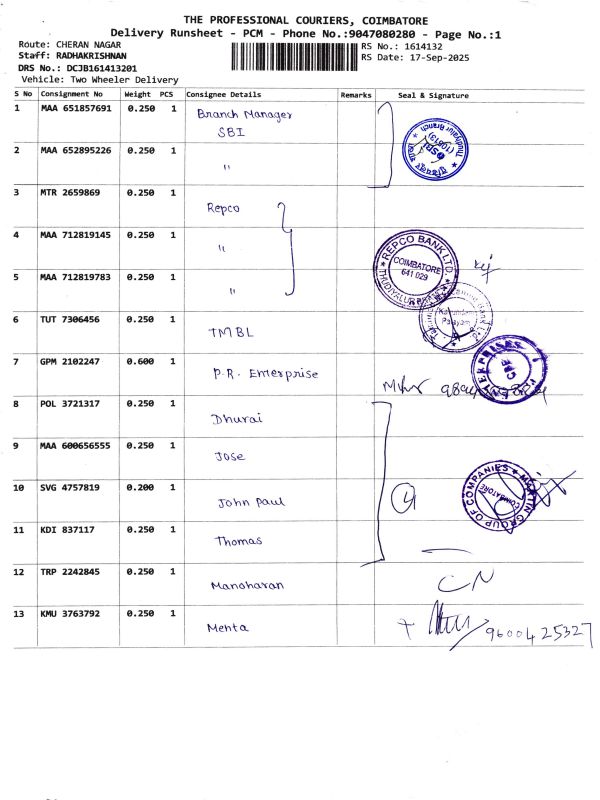 THE PROFESSIONAL COURIERS, COIMBATORE
Delivery Runsheet - PCM - Phone No.:9047080280 - Page No.:1
Route: CHERAN NAGAR
Staff: RADHAKRISHNAN
DRS No.: DCJB161413201
Vehicle: Two Wheeler Delivery
RS No.: 1614132
RS Date: 17-Sep-2025
S No Consignment No Weight PCS Consignee Details Remarks Seal & Signature
1 MAA 651857691 0.250 1 Branch Manager
SBI
2 MAA 652895226 0.250 1 "
Thudiyalur Branch
3 MTR 2659869 0.250 1 Repco
4 MAA 712819145 0.250 1 "
5 MAA 712819783 0.250 1 "
REPCO BANK LTD
COIMBATORE
641 029
6 TUT 7306456 0.250 1 TMBL
7 GPM 2102247 0.600 1 P.R. Enterprise
ENTERPRISES
CBE
8 POL 3721317 0.250 1 Dhurai
9 MAA 600656555 0.250 1 Jose
10 SVG 4757819 0.200 1 John Paul
4
MARTIN GROUP OF COMPANIES
COIMBATORE
11 KDI 837117 0.250 1 Thomas
12 TRP 2242845 0.250 1 Manoharan
CN
13 KMU 3763792 0.250 1 Mehta
9600425327